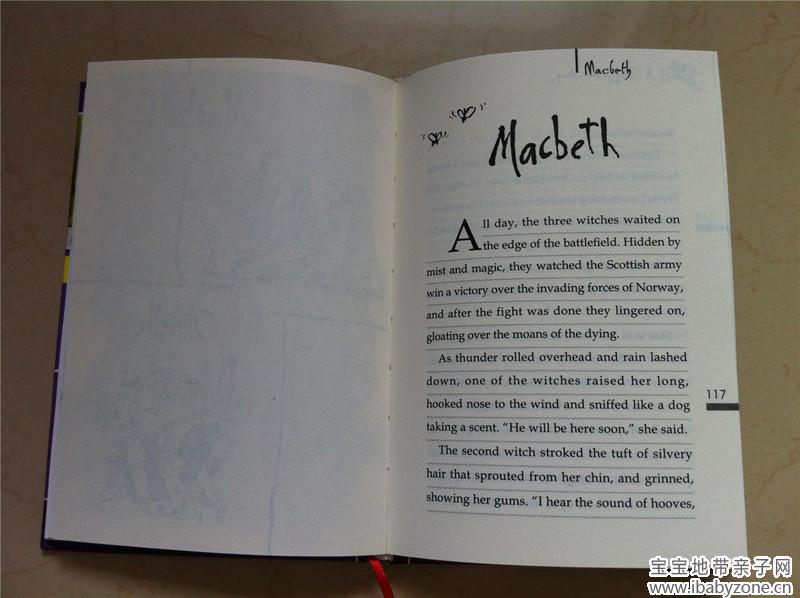 Macbeth
Macbeth
All day, the three witches waited on
the edge of the battlefield. Hidden by
mist and magic, they watched the Scottish army
win a victory over the invading forces of Norway,
and after the fight was done they lingered on,
gloating over the moans of the dying.
As thunder rolled overhead and rain lashed
down, one of the witches raised her long,
hooked nose to the wind and sniffed like a dog
taking a scent. “He will be here soon,” she said.
The second witch stroked the tuft of silvery
hair that sprouted from her chin, and grinned,
showing her gums. “I hear the sound of hooves,
117
宝宝地带亲子网
www.ibabyzone.cn